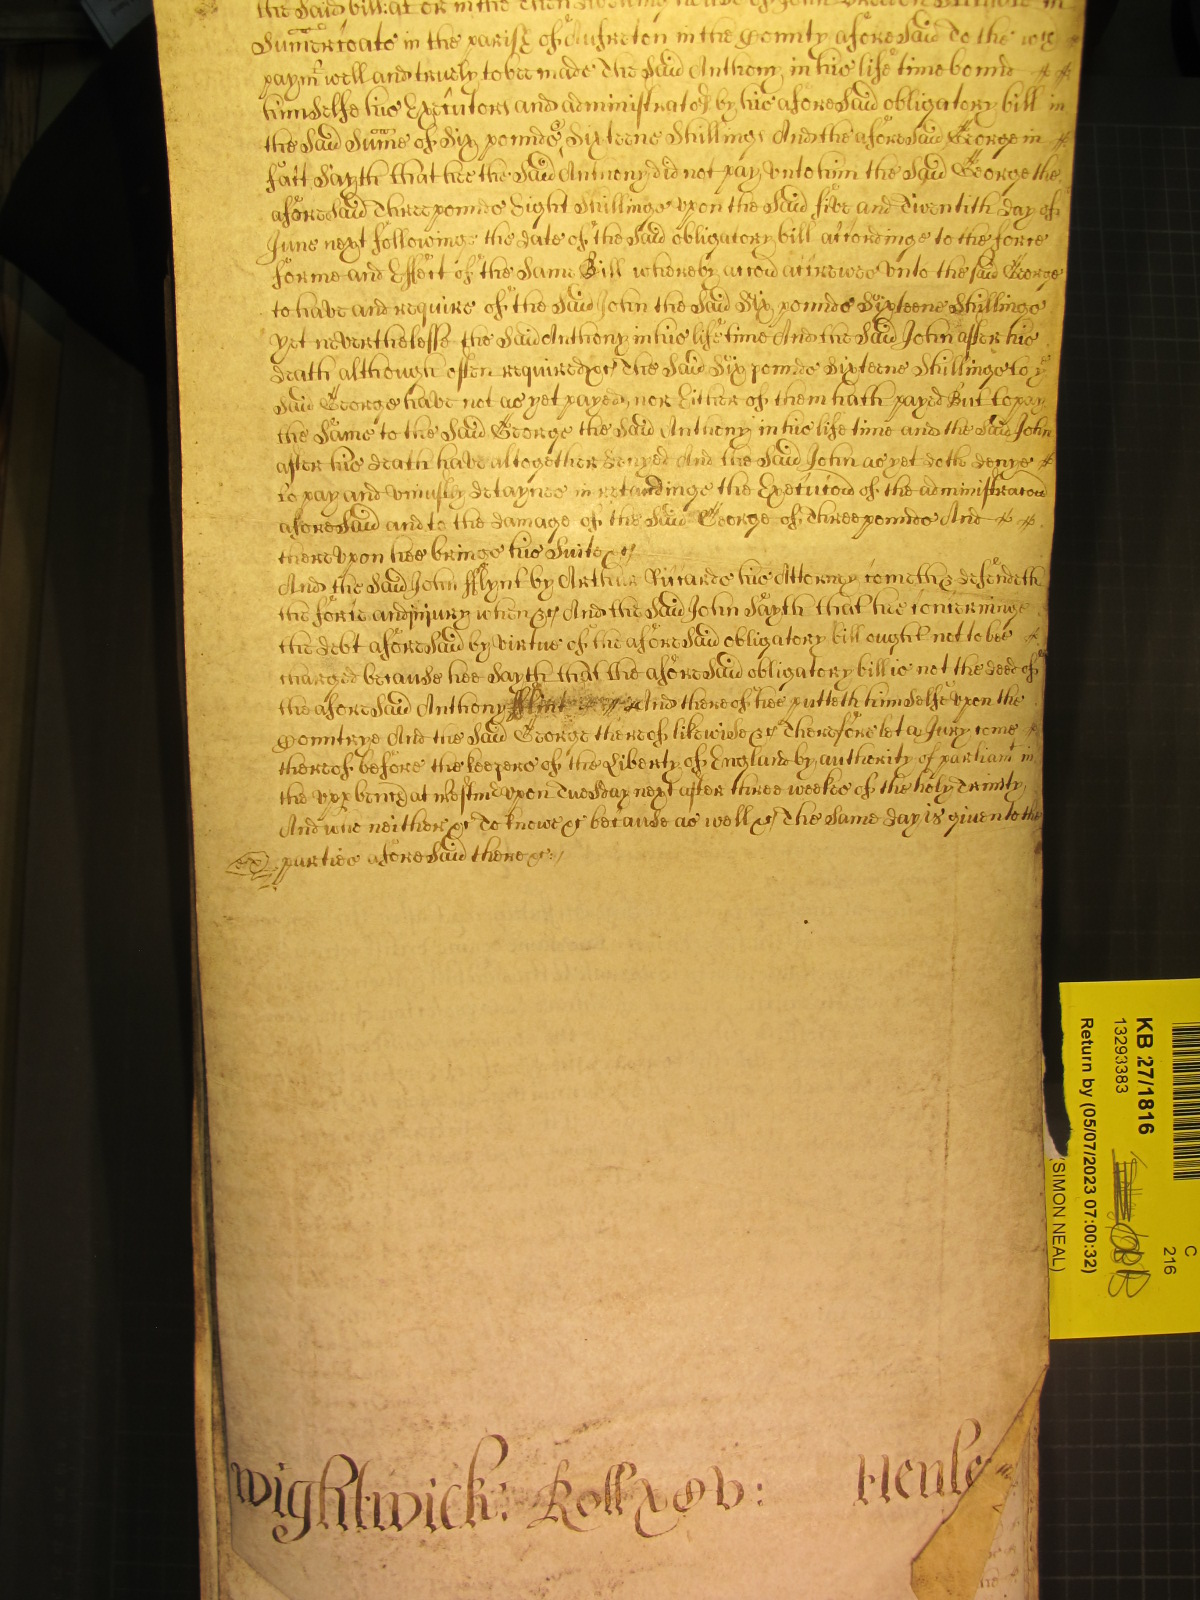 the said bill at or in the then dwelling house of John
Sumercoate in the parish of Aufreton in the County aforesaid To the wch
paymt well and truely to bee made The said Anthony in his life time bound
himselfe his Executors and administrators by his aforesaid obligatory bill in
the said Sume of Six pounds Sixteene Shillings And the aforesaid George in
fact Sayth that hee the said Anthony did not pay vnto him the said George the
aforesaid Three pounds Eight Shillings vpon the said five and Twentith day of
June next followinge the date of the said obligatory bill accordinge to the force
forme and Effect of the Same Bill whereby accon accrewes vnto the said George
to have and require of the said John the said Six pounds Sixteene Shillings
Yet neverthelesse the said Anthony in his life time And the said John after his
death although often required &c The said Six pounds Sixteene Shillings to ye
said George have not as yet payed nor Either of them hath payed But to pay
the Same to the said George the said Anthony in his life time and the said John
after his death have altogether denyed And the said John as yet doth denye
to pay and vniustly detaynes in retardinge the Execucon of the administracon
aforesaid and to the damage of the said George of Three pounds And
therevpon hee brings his Suite &c
And the said John fflynt by Arthur Riccards his Attorney cometh & defendeth
the force and injury when &c And the said John Sayth that hee concerninge
the debt aforesaid by virtue of the aforesaid obligatory bill ought not to bee
charged because hee Sayth that the aforesaid obligatory bill is not the deed of
the aforesaid Anthony fflint And thereof hee putteth himselfe vpon the
Countrye And the said George thereof likewise &c Therefore let a Jury come
thereof before the keepers of the Liberty of England by authority of parliamt in
the vpp bench at westmr vpon Tuesday next after three weekes of the holy Trinity
And who neither &c To knowe &c because as well &c The same day is given to the
parties aforesaid there &c
Wightwick: Roll XCV: Henle
KB 27/1816
13293383
Return by (05/07/2023 07:00:32)
(SIMON NEAL)
C
216